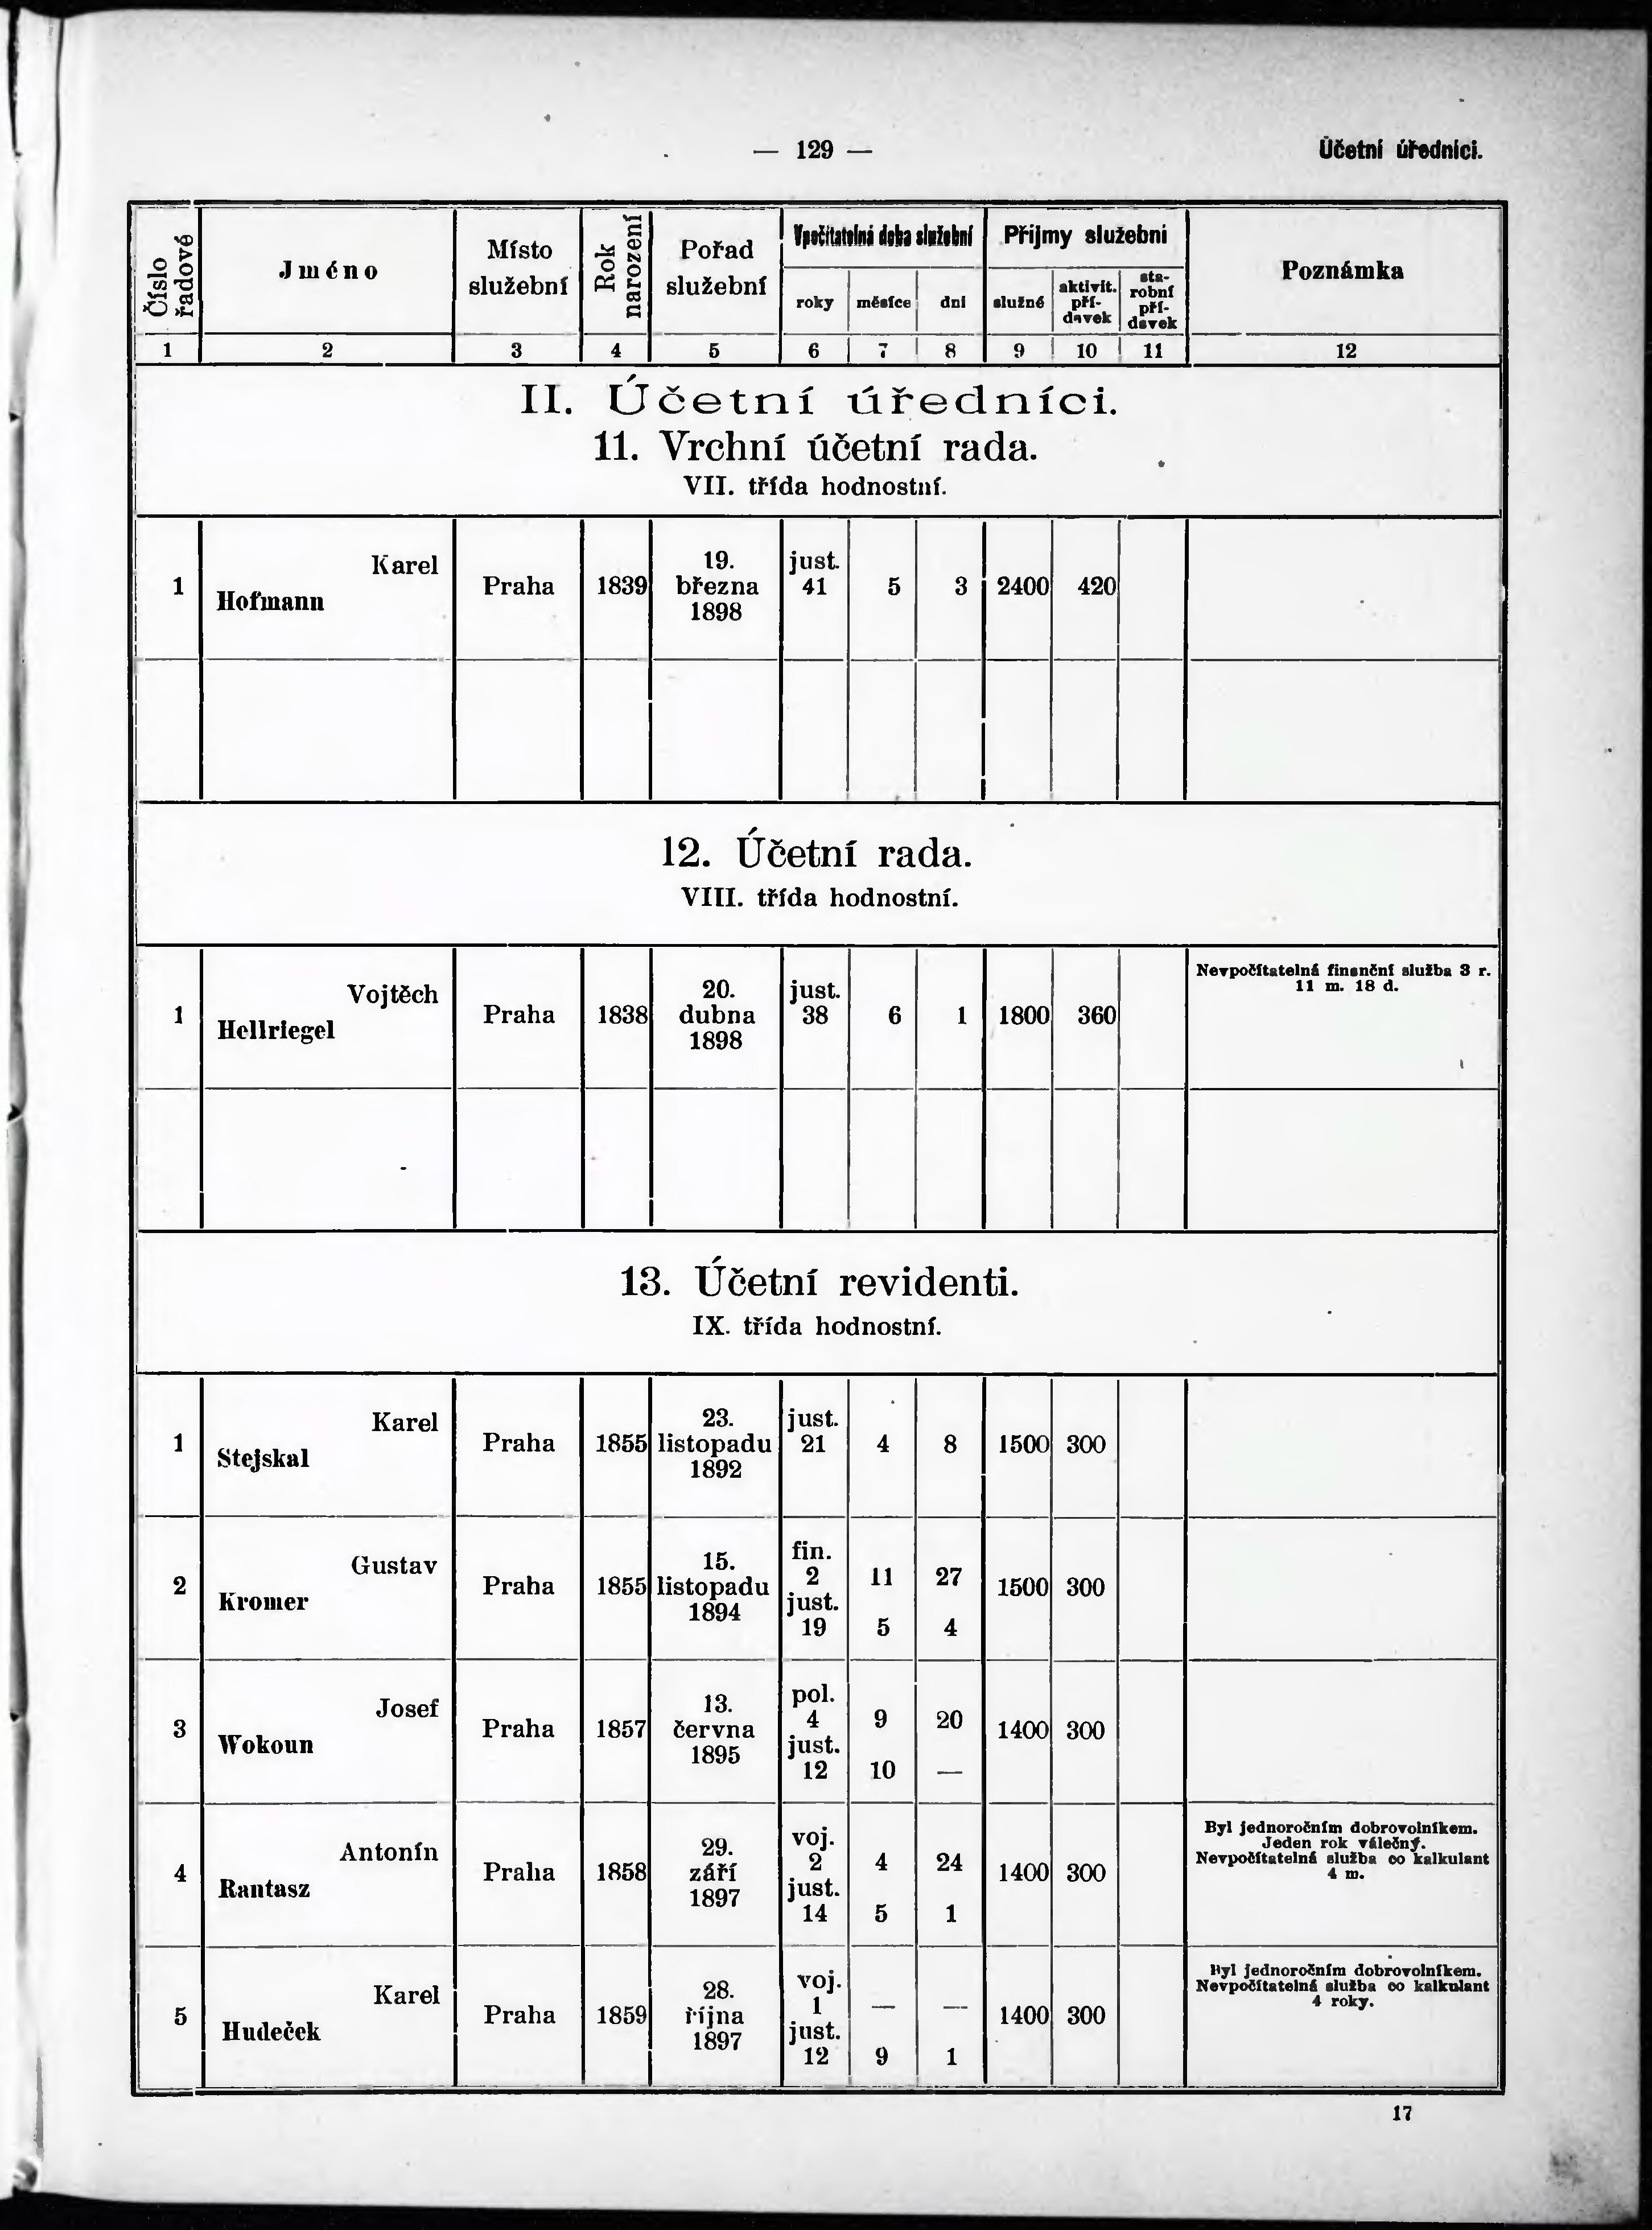 — 129 —
Účetní úředníci.
Číslo řadové
Jméno
Místo služební
Rok narození
Pořad služební
Vpočitatelná doba služební
Příjmy služební
Poznámka
roky
měsíce
dni
služné
aktivit. pří-
davek
sta-
robní
pří-
davek
1 2 3 4 5 6 7 8 9 10 11 12
II. Účetní úředníci.
11. Vrchní účetní rada.
VII. třída hodnostní.
Karel
19.
just.
1 Hofmann Praha 1839 března 41 5 3 2400 420
1898
12. Účetní rada.
VIII. třída hodnostní.
Nevpočítatelná finanční služba 3 r.
11 m. 18 d.
Vojtěch
20.
just.
1 Hellriegel Praha 1838 dubna 38 6 1 1800 360
1898
13. Účetní revidenti.
IX. třída hodnostní.
Karel
23.
just.
1 Stejskal Praha 1855 listopadu 21 4 8 1500 300
1892
fin.
Gustav
15.
2 11 27
2 Kromer Praha 1855 listopadu 1500 300
1894
just.
19 5 4
pol.
Josef
13.
4 9 20
3 Wokoun Praha 1857 června 1400 300
1895
just.
12 10 —
Byl jednoročním dobrovolníkem.
Jeden rok válečný.
Nevpočítatelná služba co kalkulant
4 m.
voj.
Antonín
29.
2 4 24
4 Rantasz Praha 1858 září 1400 300
1897
just.
14 5 1
Byl jednoročním dobrovolníkem.
Nevpočítatelná služba co kalkulant
4 roky.
voj.
Karel
28.
1 — —
5 Hudeček Praha 1859 října 1400 300
1897
just.
12 9 1
17